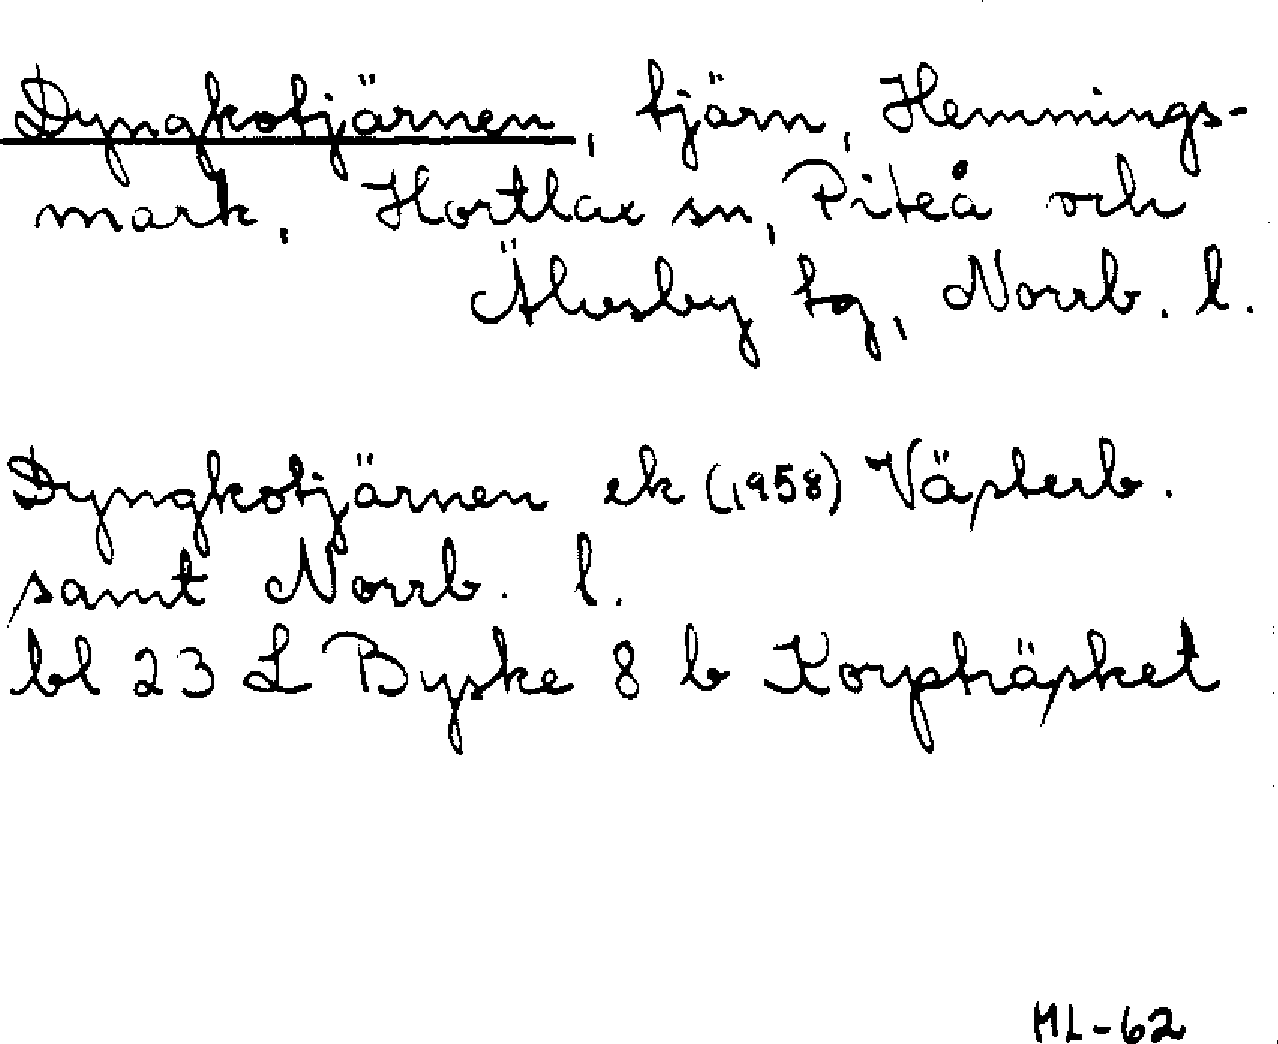 Dyngkotjärnen, tjärn, Hemmings-
mark, Hortlax sn, Piteå och
Älvsby tg, Norrb. l.
Dyngkotjärnen ek (1958) Västerb.
samt Norrb. l.
bl 23 L Byske 8 b Korpträsket
ML-62